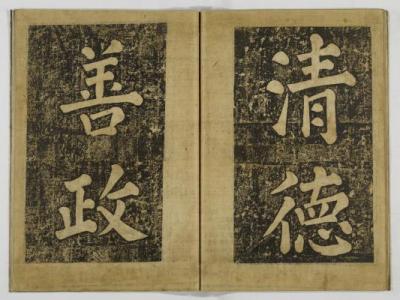 清德
善政